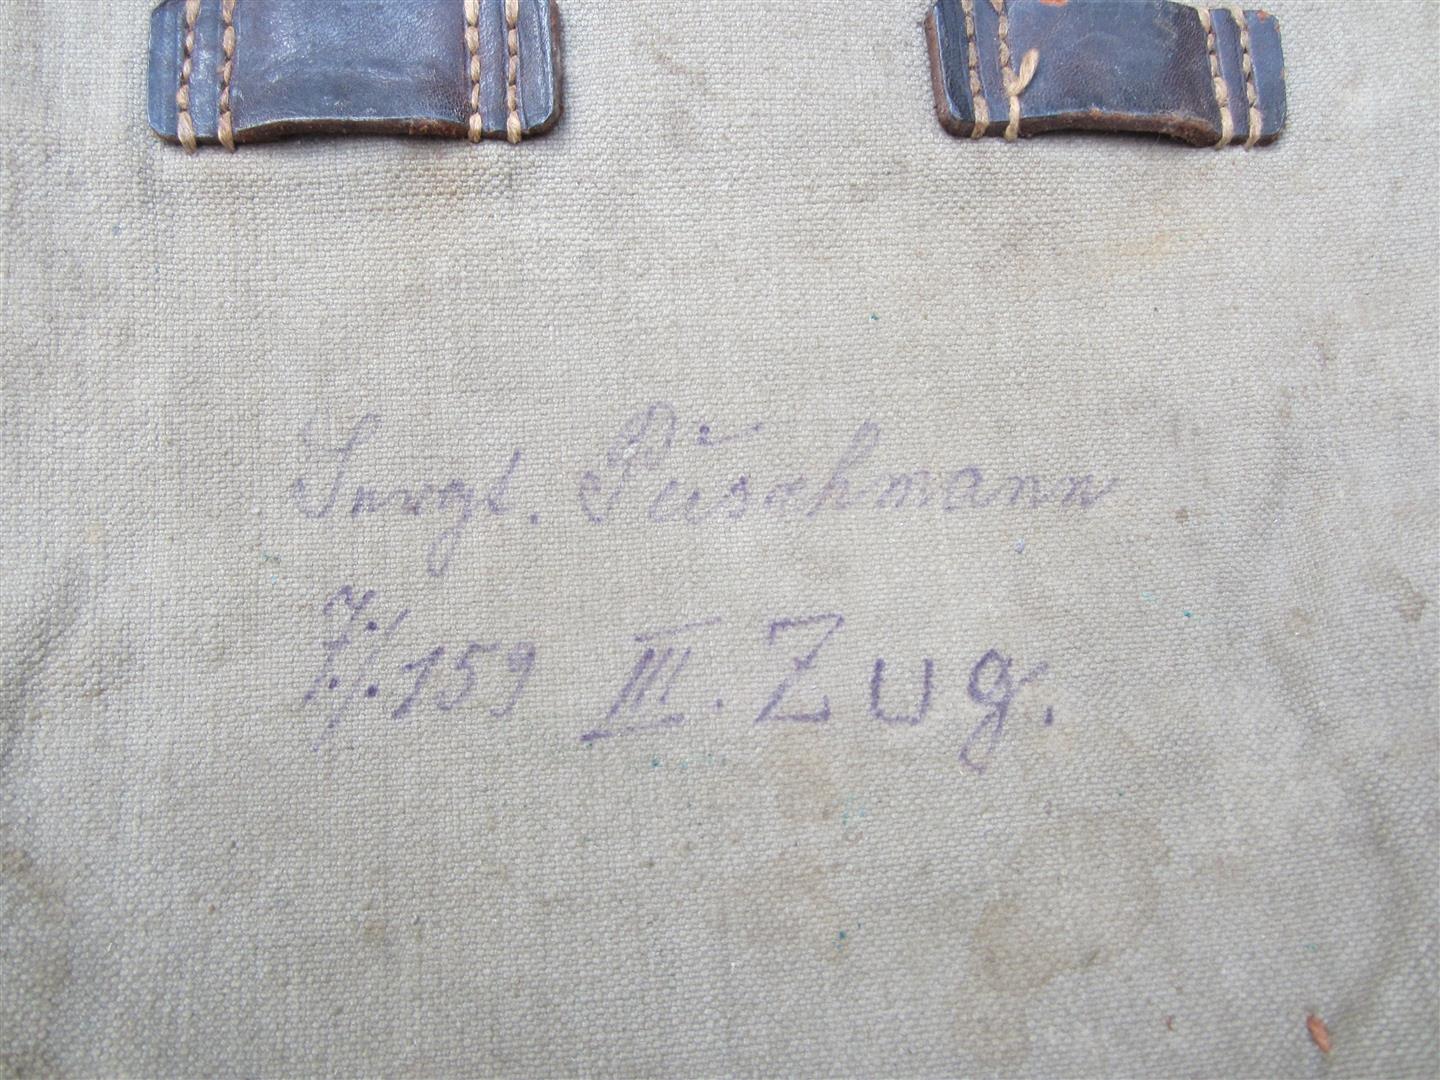 Püschmann
7./159 III. Zug.